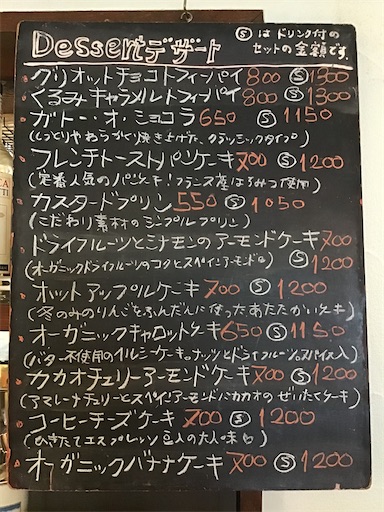 Dessert デザート
Ⓢは ドリンク付の
セットの金額です。
グリオットチョコトフィーパイ 800 Ⓢ 1300
くるみキャラメルトフィーパイ 800 Ⓢ 1300
ガトー・オ・ショコラ 650 Ⓢ 1150
(しっとりやわらかく焼き上げた、クラシックタイプ)
フレンチトーストパンケーキ 700 Ⓢ 1200
(定番人気のパンケーキ!フランス産はちみつ使用)
カスタードプリン 550 Ⓢ 1050
(こだわり素材のシンプルプリン)
ドライフルーツとシナモンのアーモンドケーキ 700
(オーガニックドライフルーツのコクとスペインアーモンド) Ⓢ 1200
ホットアップルケーキ 700 Ⓢ 1200
(冬のみのりんごをふんだんに使ったあたたかいケーキ)
オーガニックキャロットケーキ 650 Ⓢ 1150
(バター不使用のオイルケーキ。ナッツとドライフルーツ。スパイス入)
カカオチェリーアーモンドケーキ 700 Ⓢ 1200
(アマレーナチェリーとスペインアーモンドにカカオのぜいたくケーキ)
コーヒーチーズケーキ 700 Ⓢ 1200
(ひきたてエスプレッソ の大人味)
オーガニックバナナケーキ 700 Ⓢ 1200